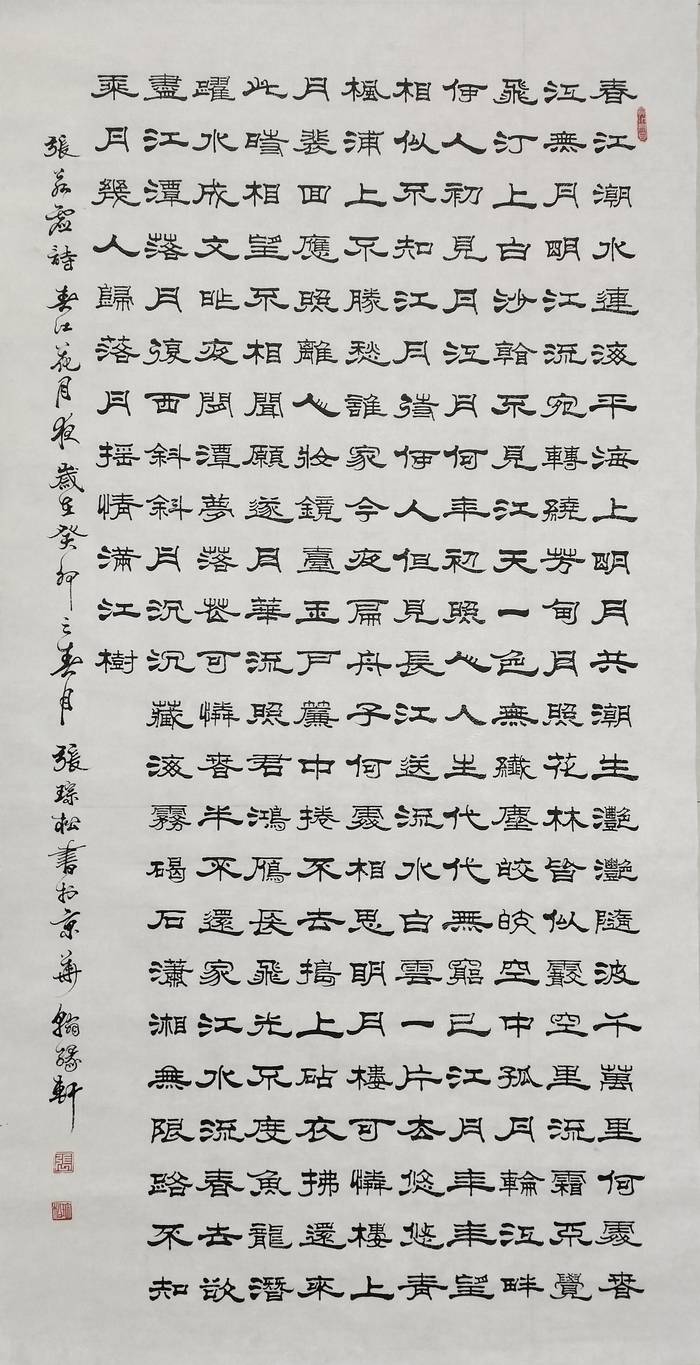 春江潮水連海平海上明月共潮生灩灩隨波千萬里何處春
江無月明江流宛轉繞芳甸月照花林皆似霰空里流霜不覺
飛汀上白沙看不見江天一色無纖塵皎皎空中孤月輪江畔
何人初見月江月何年初照人人生代代無窮已江月年年望
相似不知江月待何人但見長江送流水白雲一片去悠悠青
楓浦上不勝愁誰家今夜扁舟子何處相思明月樓可憐樓上
月裴回應照離人妝鏡臺玉戶簾中捲不去搗上砧衣拂還來
此時相望不相聞願逐月華流照君鴻雁長飛光不度魚龍潛
躍水成文昨夜閑潭夢落花可憐春半不還家江水流春去欲
盡江潭落月復西斜斜月沉沉藏海霧碣石瀟湘無限路不知
乘月幾人歸落月搖情滿江樹
張若虛詩春江花月夜歲在癸卯之春月張琮松書於京華翰緣軒
張